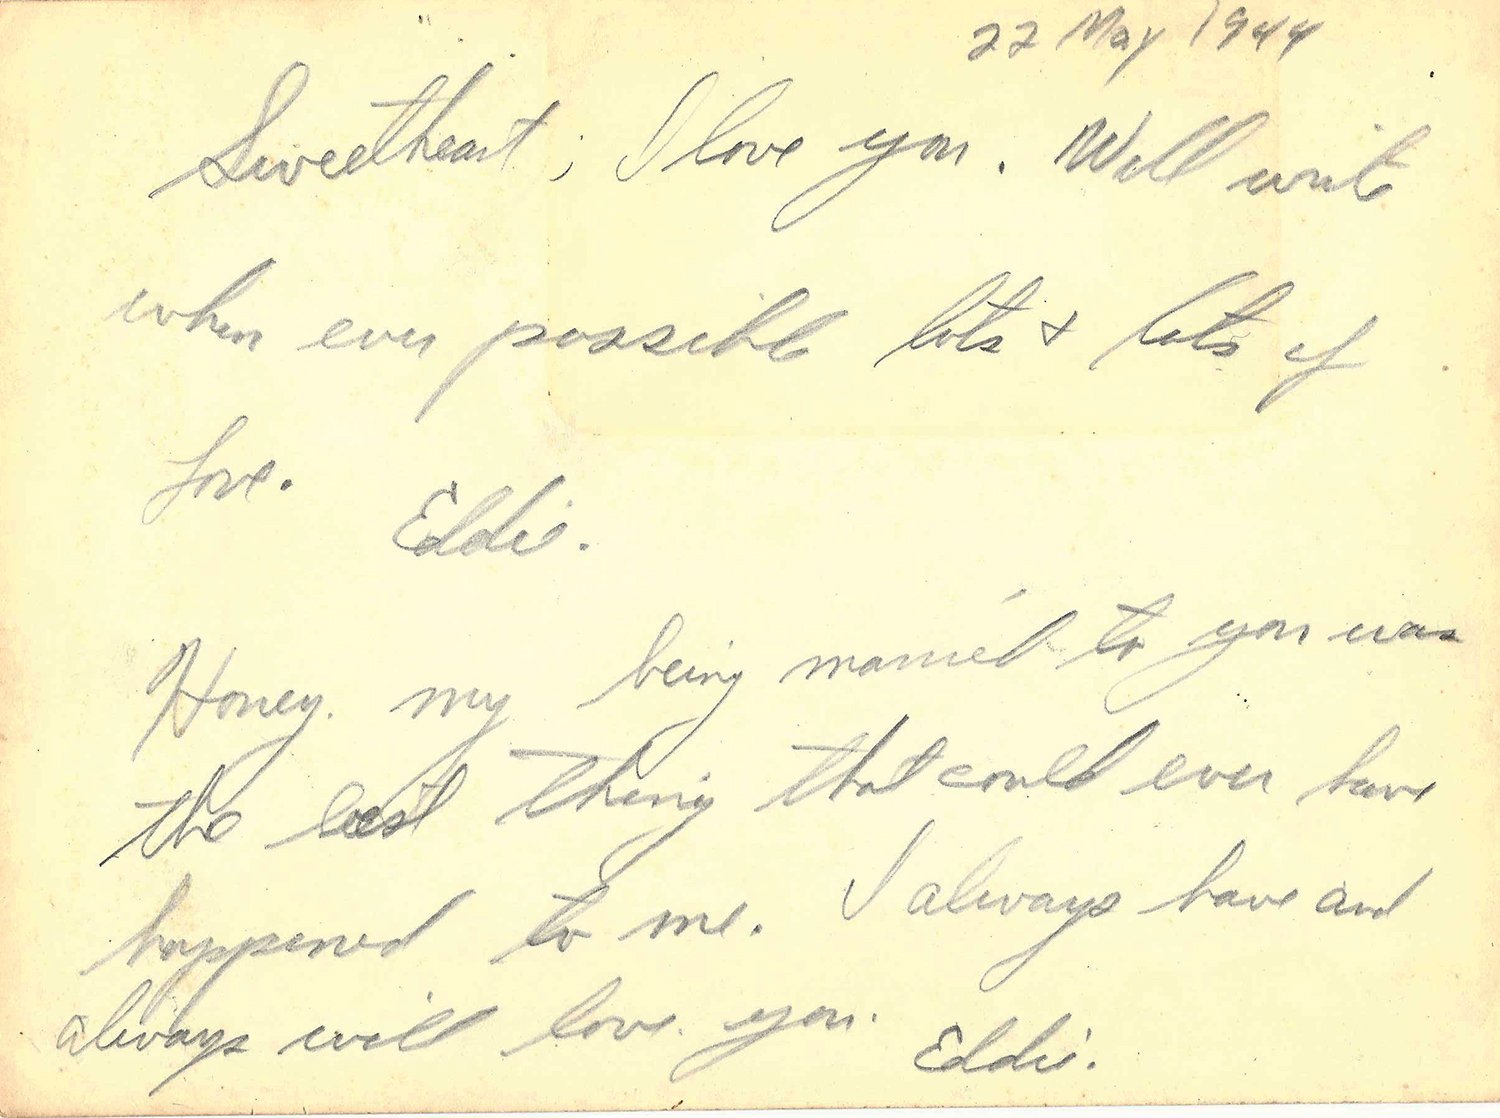 22 May 1944
Sweetheart; I love you. Will write
when ever possible lots & lots of
Love.
Eddie.
Honey. my being married to you was
the best thing that could ever have
happened to me. I always have and
always will love you. Eddie.